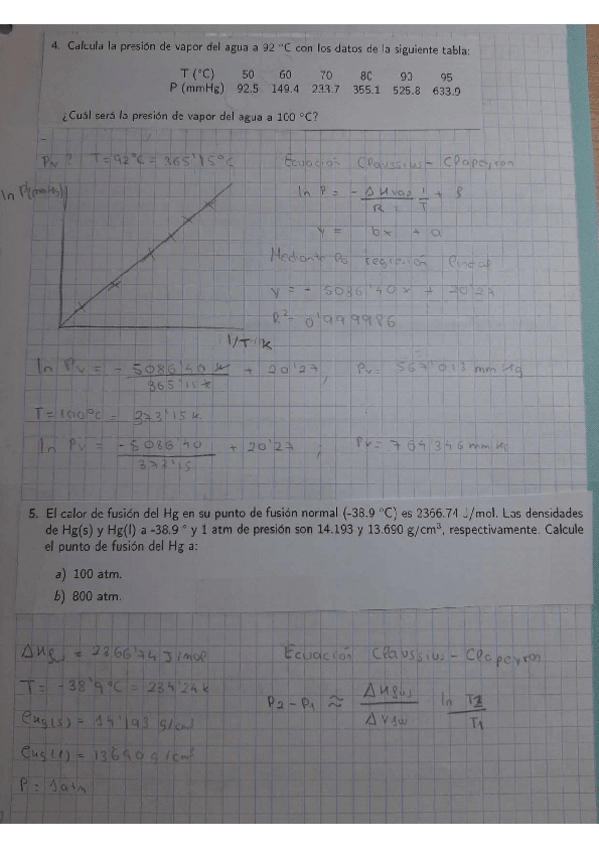 4. Calcula la presión de vapor del agua a 92 °C con los datos de la siguiente tabla:
T (°C) 50 60 70 80 90 95
P (mmHg) 92.5 149.4 233.7 355.1 525.8 633.9
¿Cuál será la presión de vapor del agua a 100 °C?
Pv? T=92°C = 365'15°C Ecuación Claussius-Clapeyron
ln P = - ΔHvap/R 1/T +
y = bx + a
Mediante regresión lineal
y = - 5086'40x + 20'27
R²= 0'999986
1/T K
ln Pv = - 5086'40 K / 365'15 K + 20'27, Pv= 567'013 mmHg
T=100°C = 373'15 K
ln Pv = -5086'40 / 373'15 + 20'27 ; Pv= 764'346 mmHg
5. El calor de fusión del Hg en su punto de fusión normal (-38.9 °C) es 2366.74 J/mol. Las densidades
de Hg(s) y Hg(l) a -38.9 ° y 1 atm de presión son 14.193 y 13.690 g/cm³, respectivamente. Calcule
el punto de fusión del Hg a:
a) 100 atm.
b) 800 atm.
ΔHfus = 2366'74 J/mol Ecuación Claussius-Clapeyron
T = -38'9°C = 234'24 K
P2 - P1 ≈ ΔHfus / ΔVfus ln T2 / T1
ρHg(s) = 14'193 g/cm³
ρHg(l) = 13'690 g/cm³
P = 1 atm